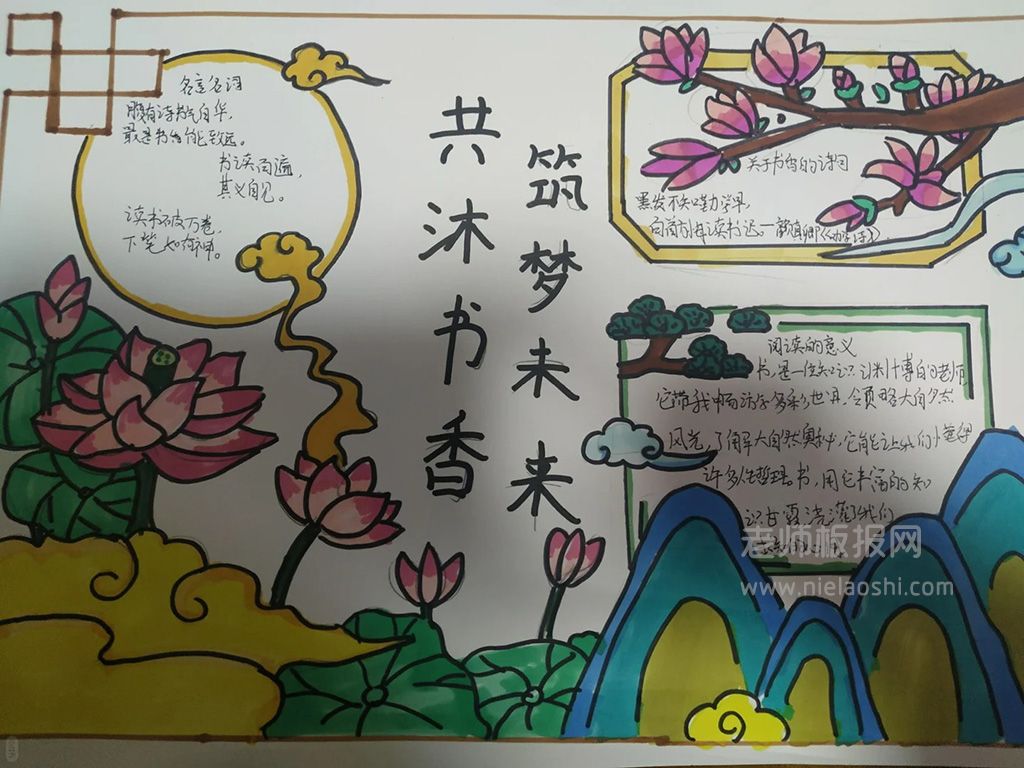 共沐书香
筑梦未来
名言名词
腹有诗书气自华，
最是书香能致远。
书读百遍，
其义自见。
读书破万卷，
下笔如有神。
关于书香的诗词
黑发不知勤学早，
白首方悔读书迟。—颜真卿《劝学诗》
阅读的意义
书，是一位知识渊博的老师
它带我畅游多彩世界，领略大自然
风光，了解大自然奥秘，它能让我们懂得
许多人生哲理书，用它丰富的知
识甘露浇灌我们
老师板报网
www.nielaoshi.com